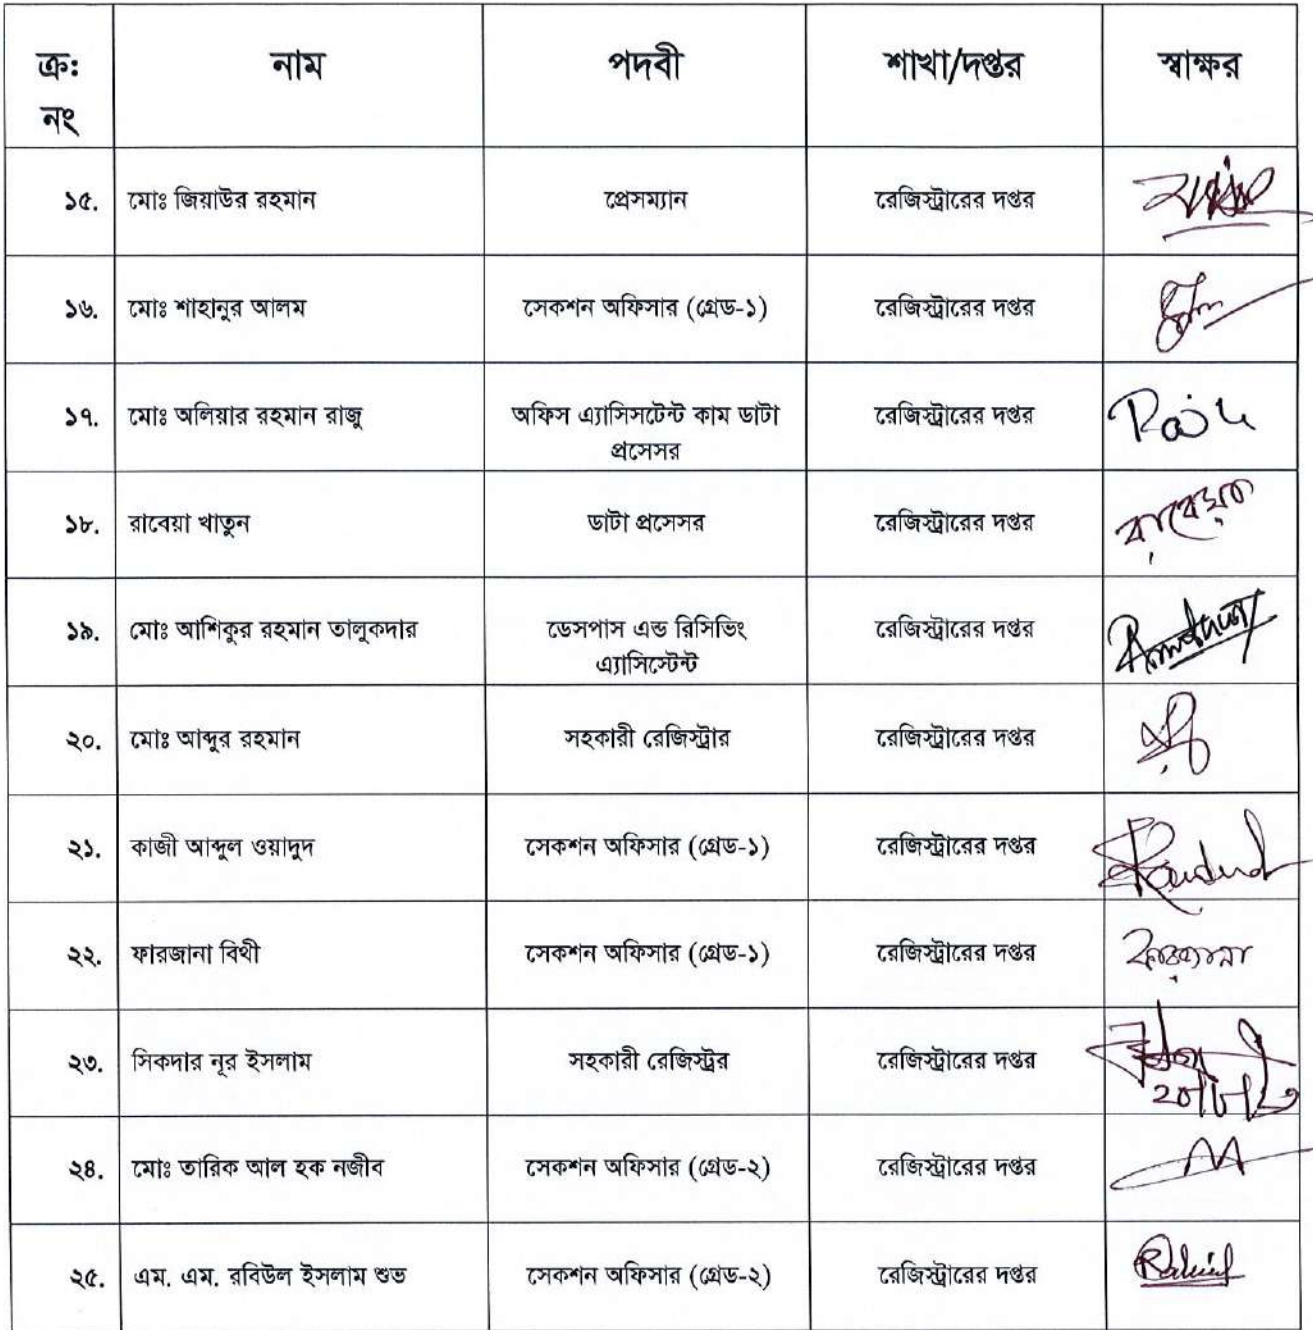 ক্র: নাম পদবী শাখা/দপ্তর স্বাক্ষর
নং
১৫. মোঃ জিয়াউর রহমান প্রেসম্যান রেজিস্ট্রারের দপ্তর
১৬. মোঃ শাহানুর আলম সেকশন অফিসার (গ্রেড-১) রেজিস্ট্রারের দপ্তর
১৭. মোঃ অলিয়ার রহমান রাজু অফিস এ্যাসিসটেন্ট কাম ডাটা রেজিস্ট্রারের দপ্তর Raju
প্রসেসর
১৮. রাবেয়া খাতুন ডাটা প্রসেসর রেজিস্ট্রারের দপ্তর রাবেয়া
১৯. মোঃ আশিকুর রহমান তালুকদার ডেসপাস এন্ড রিসিভিং রেজিস্ট্রারের দপ্তর
এ্যাসিস্টেন্ট
২০. মোঃ আব্দুর রহমান সহকারী রেজিস্ট্রার রেজিস্ট্রারের দপ্তর
২১. কাজী আব্দুল ওয়াদুদ সেকশন অফিসার (গ্রেড-১) রেজিস্ট্রারের দপ্তর
২২. ফারজানা বিথী সেকশন অফিসার (গ্রেড-১) রেজিস্ট্রারের দপ্তর ফারজানা
২৩. সিকদার নূর ইসলাম সহকারী রেজিস্ট্রর রেজিস্ট্রারের দপ্তর
২৪. মোঃ তারিক আল হক নজীব সেকশন অফিসার (গ্রেড-২) রেজিস্ট্রারের দপ্তর
২৫. এম. এম. রবিউল ইসলাম শুভ সেকশন অফিসার (গ্রেড-২) রেজিস্ট্রারের দপ্তর